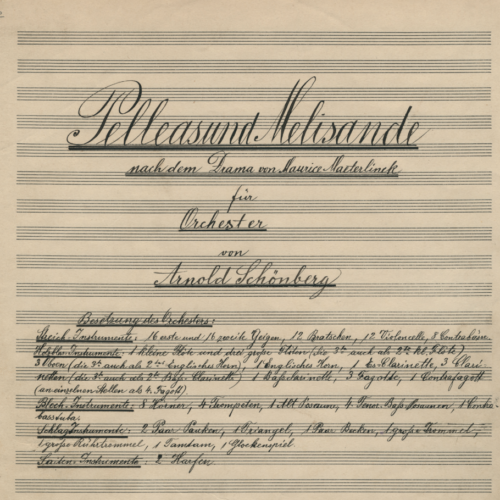 Pelleas und Melisande
nach dem Drama von Maurice Maeterlinck
für
Orchester
von
Arnold Schönberg
Besetzung des Orchesters:
Streich-Instrumente: 16 erste und 16 zweite Geigen, 12 Bratschen, 12 Violoncelle, 8 Contrabässe
Holzblas-Instrumente: 1 kleine Flöte und drei große Flöten (die 3te auch als 2te kl. Flöte)
3 Oboen (die 3te auch als 2tes Englisches Horn), 1 Englisches Horn, 1 Es-Clarinette, 3 Clari-
netten (die 3te auch als 2te Baß-Clarinette) 1 Baßclarinette, 3 Fagotte, 1 Contrafagott
(an einzelnen Stellen als 4. Fagott)
Blech-Instrumente: 8 Hörner, 4 Trompeten, 1 Alt Posaune, 4 Tenor-Baß-Posaunen, 1 Contra-
basstuba
Schlag Instrumente: 2 Paar Pauken, 1 Triangel, 1 Paar Becken, 1 große Trommel,
1 große Rührtrommel, 1 Tamtam, 1 Glockenspiel
Saiten-Instrumente: 2 Harfen